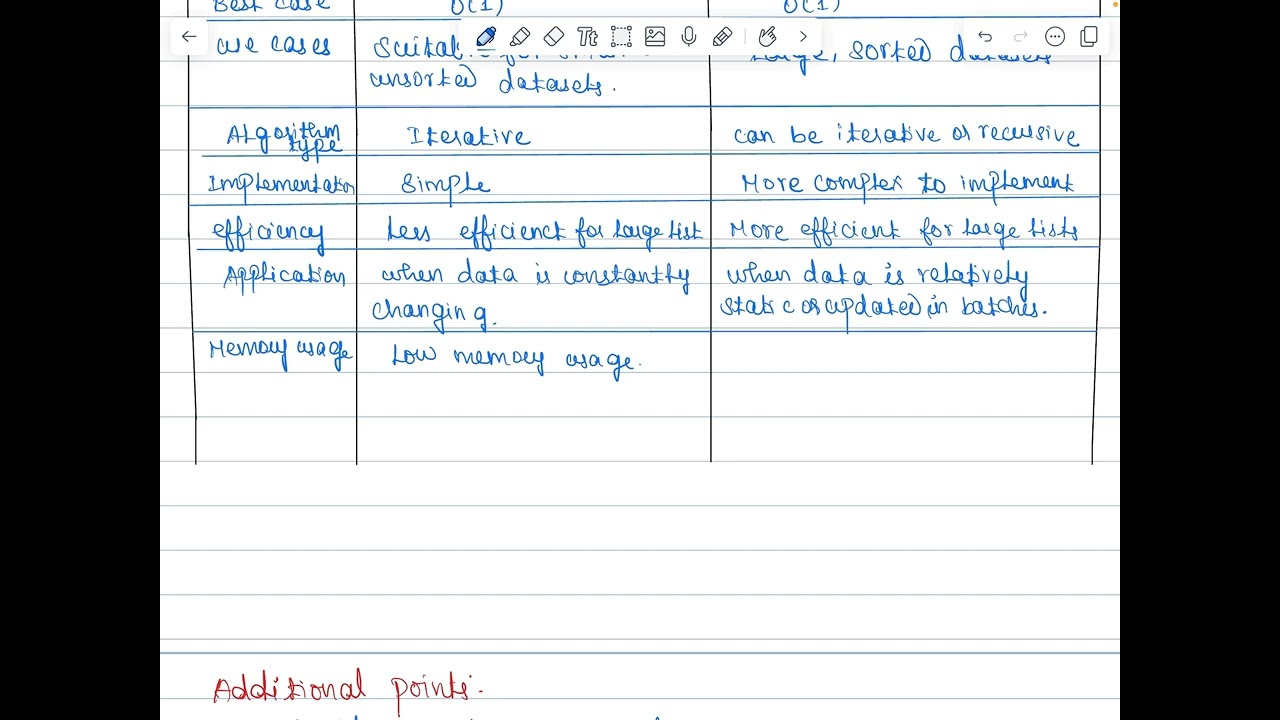 Best case O(1) O(1)
use cases Suitable for
unsorted datasets. Large, sorted datasets
Algorithm type Iterative can be iterative or recursive
Implementation Simple More complex to implement
efficiency Less efficienct for large list More efficient for large lists
Application when data is constantly when data is relatively
changing. static or updated in batches.
Memory usage Low memory usage.
Tt
Additional points: